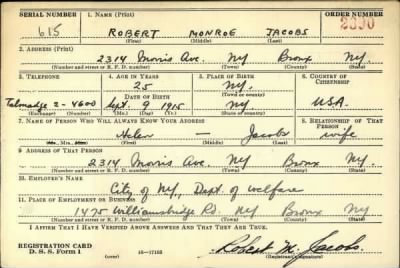 SERIAL NUMBER 1. NAME (Print) ORDER NUMBER
615 ROBERT MONROE JACOBS
(First) (Middle) (Last)
2. ADDRESS (Print)
2314 Morris Ave. NY Bronx NY
(Number and street or R. F. D. number) (Town) (County) (State)
3. TELEPHONE 4. AGE IN YEARS 5. PLACE OF BIRTH 6. COUNTRY OF CITIZENSHIP
25 NY
DATE OF BIRTH (Town or county)
Talmadge 2-4600 Sept. 9 1915 NY U.S.A.
(Exchange) (Number) (Mo.) (Day) (Yr.) (State or country)
7. NAME OF PERSON WHO WILL ALWAYS KNOW YOUR ADDRESS 8. RELATIONSHIP OF THAT PERSON
Helen — Jacobs wife
(Mr., Mrs., Miss) (First) (Middle) (Last)
9. ADDRESS OF THAT PERSON
2314 Morris Ave. NY Bronx NY.
(Number and street or R. F. D. number) (Town) (County) (State)
10. EMPLOYER'S NAME
City of NY, Dept. of welfare
11. PLACE OF EMPLOYMENT OR BUSINESS
1475 Williamsbridge Rd. NY Bronx NY
(Number and street or R. F. D. number) (Town) (County) (State)
I AFFIRM THAT I HAVE VERIFIED ABOVE ANSWERS AND THAT THEY ARE TRUE.
REGISTRATION CARD
D. S. S. Form 1 16—17105 Robert M. Jacobs.
(Registrant's signature)